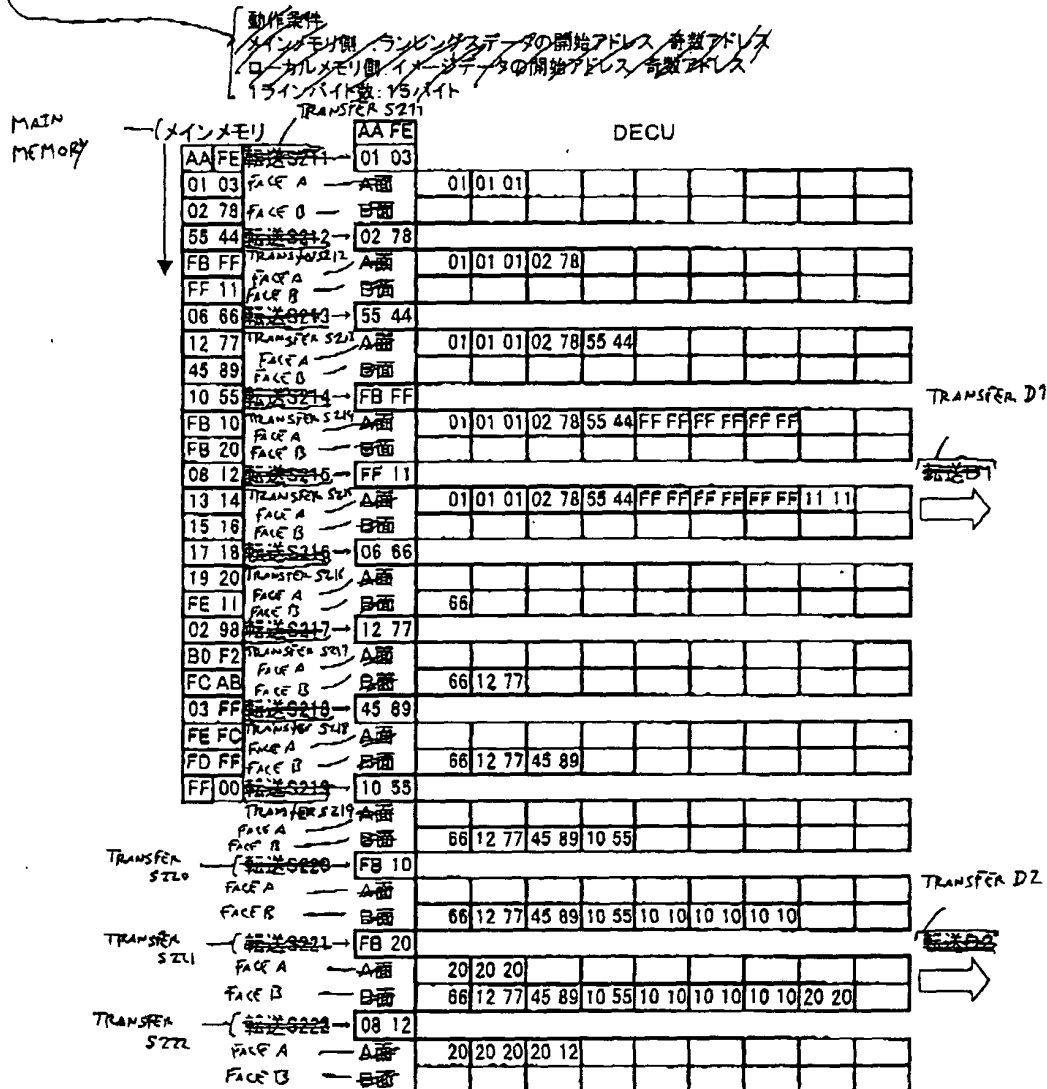 動作条件
メインメモリ側:ランレングスデータの開始アドレス 奇数アドレス
ローカルメモリ側:イメージデータの開始アドレス 奇数アドレス
1ラインバイト数:15バイト
TRANSFER S211
MAIN MEMORY メインメモリ AA FE DECU
AA FE 転送S211→ 01 03
01 03 FACE A A面 01 01 01
02 78 FACE B B面
55 44 転送S212→ 02 78
FB FF TRANSFER S212 FACE A A面 01 01 01 02 78
FF 11 FACE B B面
06 66 転送S213→ 55 44
12 77 TRANSFER S213 FACE A A面 01 01 01 02 78 55 44
45 89 FACE B B面
10 55 転送S214→ FB FF TRANSFER D1
FB 10 TRANSFER S214 FACE A A面 01 01 01 02 78 55 44 FF FF FF FF FF FF
FB 20 FACE B B面
08 12 転送S215→ FF 11 転送D1
13 14 TRANSFER S215 FACE A A面 01 01 01 02 78 55 44 FF FF FF FF FF FF 11 11
15 16 FACE B B面
17 18 転送S216→ 06 66
19 20 TRANSFER S216 FACE A A面
FE 11 FACE B B面 66
02 98 転送S217→ 12 77
B0 F2 TRANSFER S217 FACE A A面
FC AB FACE B B面 66 12 77
03 FF 転送S218→ 45 89
FE FC TRANSFER S218 FACE A A面
FD FF FACE B B面 66 12 77 45 89
FF 00 転送S219→ 10 55
TRANSFER S219 FACE A A面
FACE B B面 66 12 77 45 89 10 55
TRANSFER S220 転送S220→ FB 10
FACE A A面 TRANSFER D2
FACE B B面 66 12 77 45 89 10 55 10 10 10 10 10 10
TRANSFER S221 転送S221→ FB 20 転送D2
FACE A A面 20 20 20
FACE B B面 66 12 77 45 89 10 55 10 10 10 10 10 10 20 20
TRANSFER S222 転送S222→ 08 12
FACE A A面 20 20 20 20 12
FACE B B面